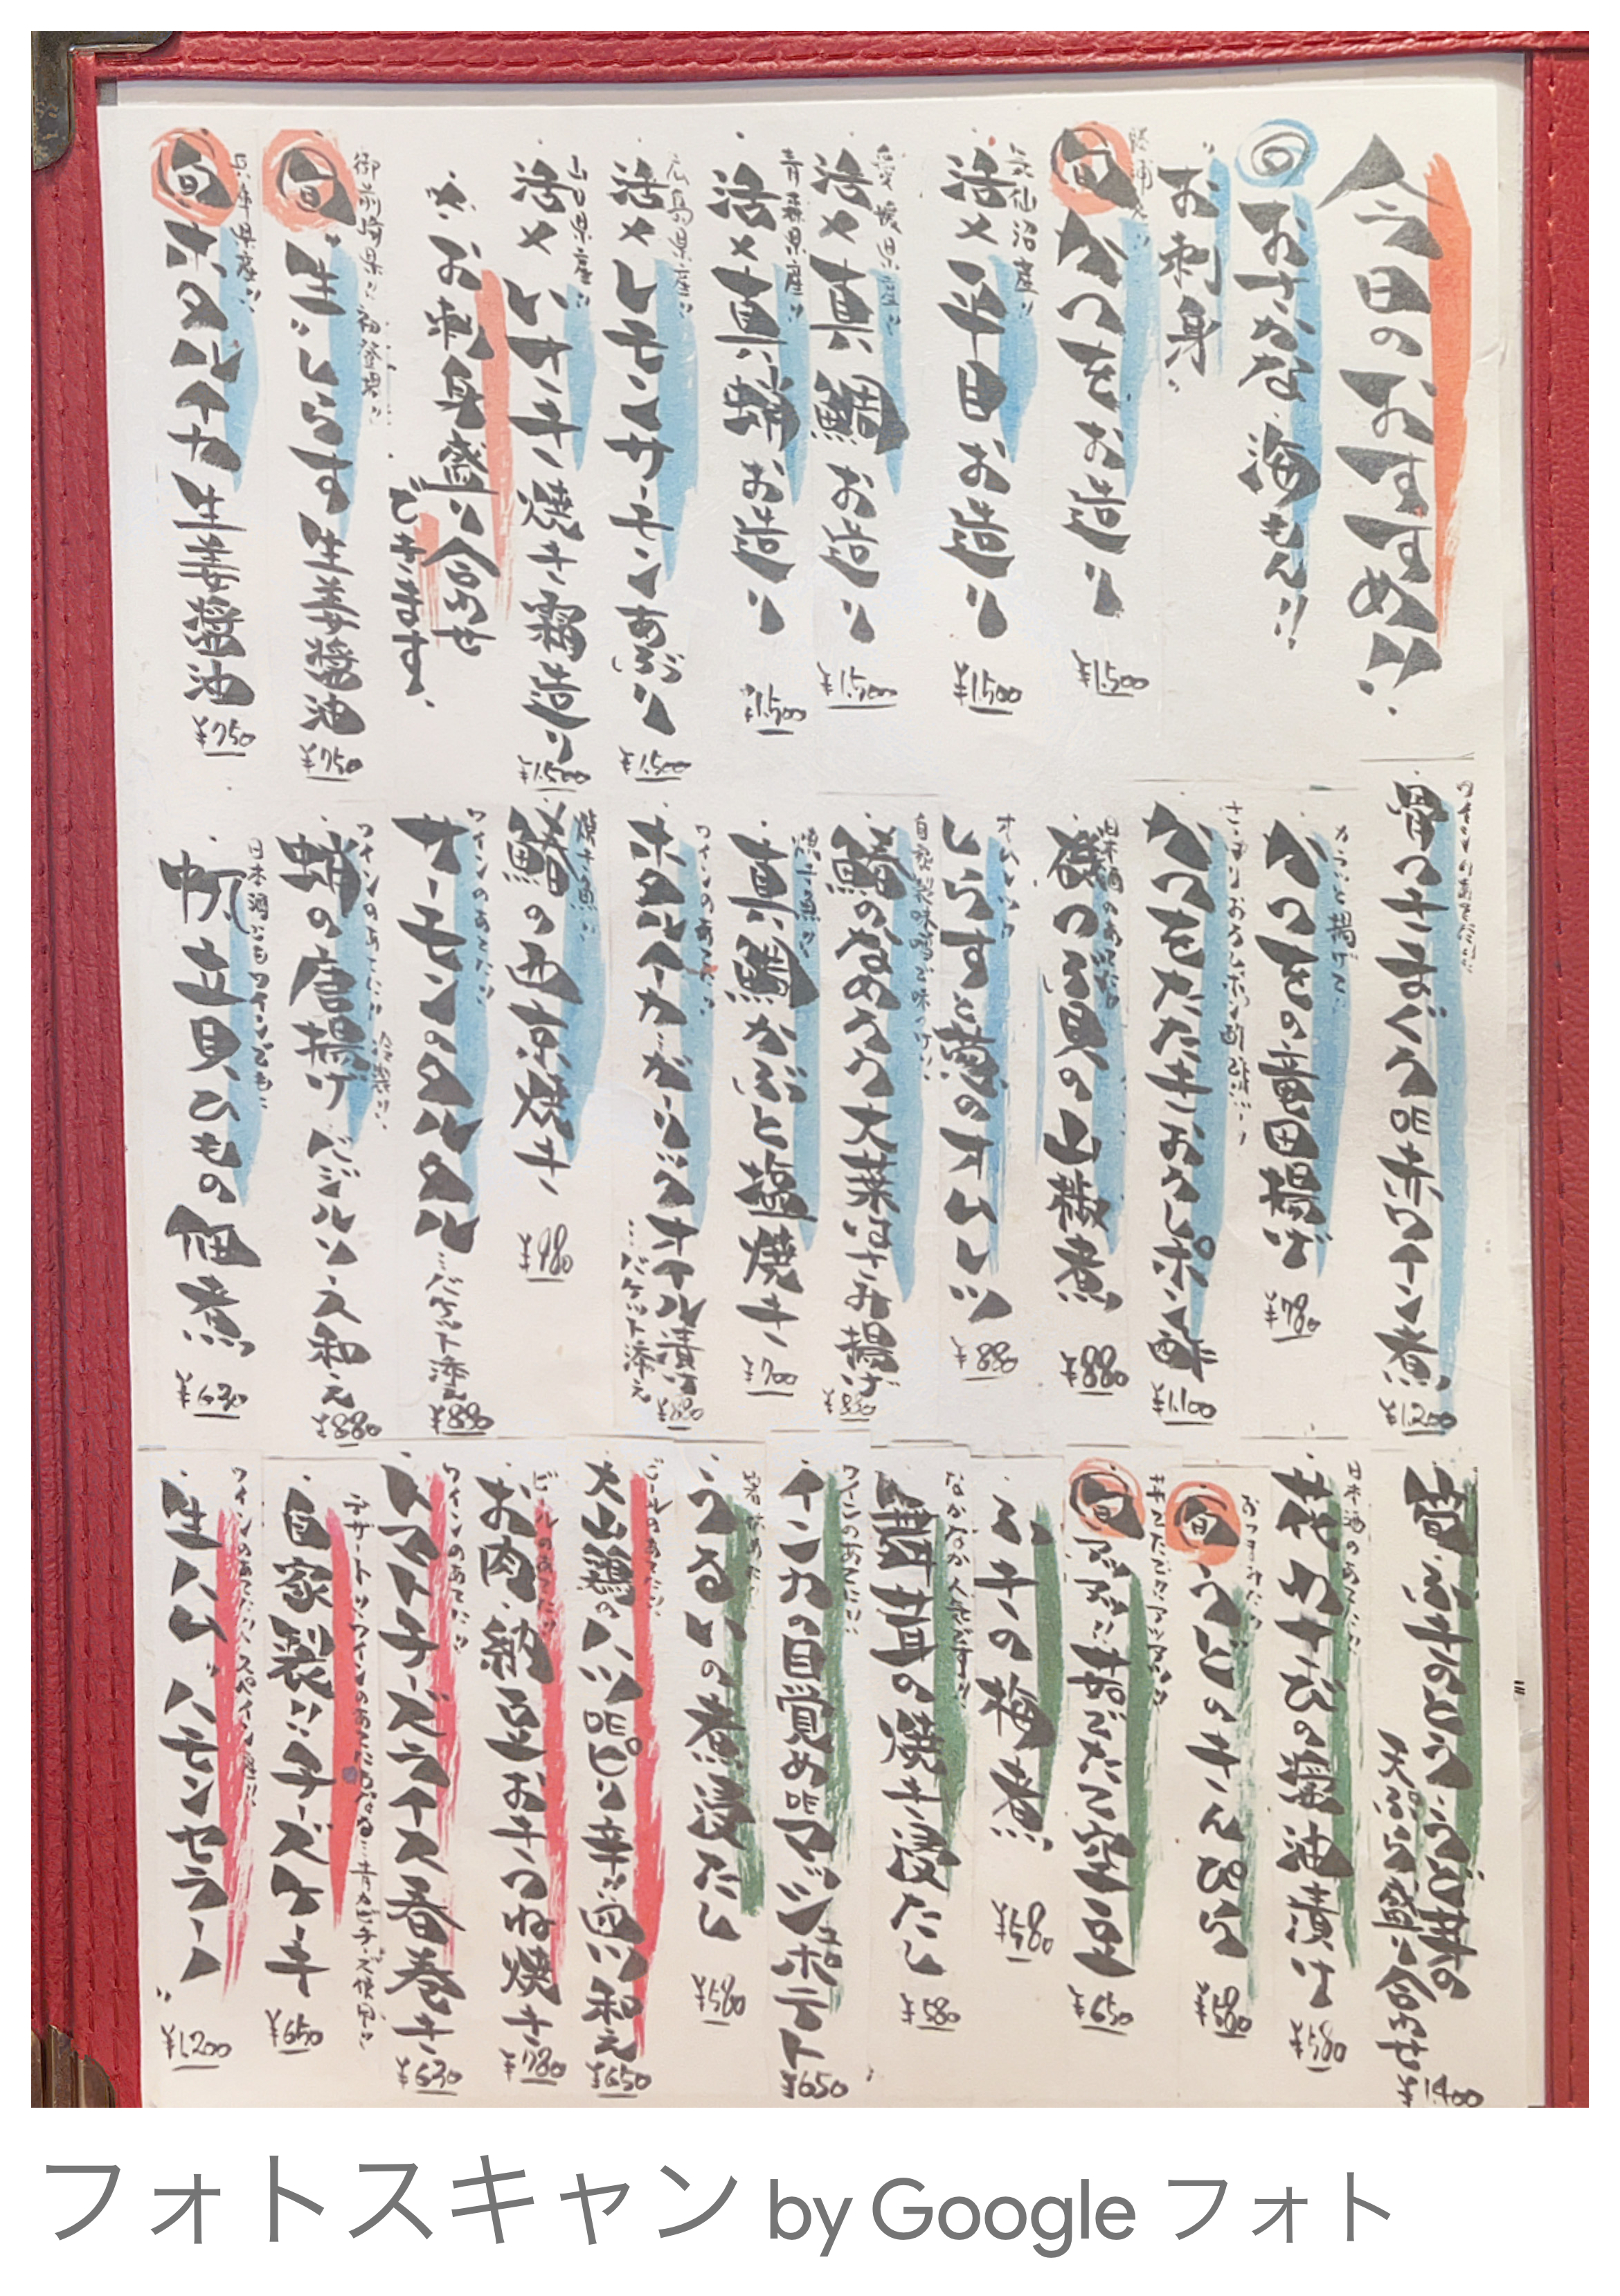 今日のおすすめ!!
おさかな 海もん!!
お刺身
旬 かつをお造り ¥1,500
気仙沼産!!
活〆 平田お造り ¥1,500
愛媛県産!!
活〆 真鯛お造り ¥1,500
青森県産!!
活〆 真蛸お造り ¥1,500
広島県産!!
活〆 レモンサーモン あぶり ¥1,500
山口県産!!
活〆 いサキ 焼き霜造り ¥1,500
お刺身盛り合わせ
できます。
御前崎県!! 初登場!!
旬 生しらす 生姜醤油 ¥750
兵庫県産!!
旬 ホタルイカ 生姜醤油 ¥750
骨つきまぐろ 赤ワイン煮 ¥1,200
からっと揚げて!!
かつをの竜田揚げ ¥780
さっぱりおろしポン酢で!!
かつをたたきおろしポン酢 ¥1,100
日本酒のあてに!!
磯つぶ貝の山椒煮 ¥880
しらすと葱のオムレツ ¥880
自家製味噌で味つけ!!
鯵のなめろう大葉はさみ揚げ ¥880
焼き魚!!
真鯛かぶと塩焼き ¥700
ワインのあてに!!
ホタルイカ ガーリックオイル漬け
…バケット添え ¥880
焼き魚!!
鰆の西京焼き ¥980
ワインのあてに!!
サーモンのタルタル …バケット添え ¥880
ワインのあてに!! 冷製!!
蛸の唐揚げ バジルソース和え ¥880
日本酒にもワインにも!!
帆立貝ひもの佃煮 ¥630
筍 ふきのとう こごみの
天ぷら盛り合わせ ¥1,400
日本酒のあてに!!
花わさびの醤油漬け ¥580
おつまみに!!
旬 うどのきんぴら ¥580
旬 茹でたて空豆 ¥650
ふきの梅煮 ¥580
なかなか人気です!!
椎茸の焼き浸だし ¥580
ワインのあてに!!
インカの目覚め de マッシュポテト ¥650
うるいの煮浸だし ¥580
ビールのあてに!!
大山鶏のハツ de ピリ辛 和え ¥650
ビールのあてに!!
お肉・納豆お年つね焼き ¥780
ワインのあてに!!
トマトチーズライス春巻き ¥630
デザート!! ワインのあてにもなる…青カビチーズ使用!!
自家製!! チーズケーキ ¥650
ワインのあてに!! スペイン産!!
生ハム" ハモンセラーノ" ¥1,200
フォトスキャン by Google フォト